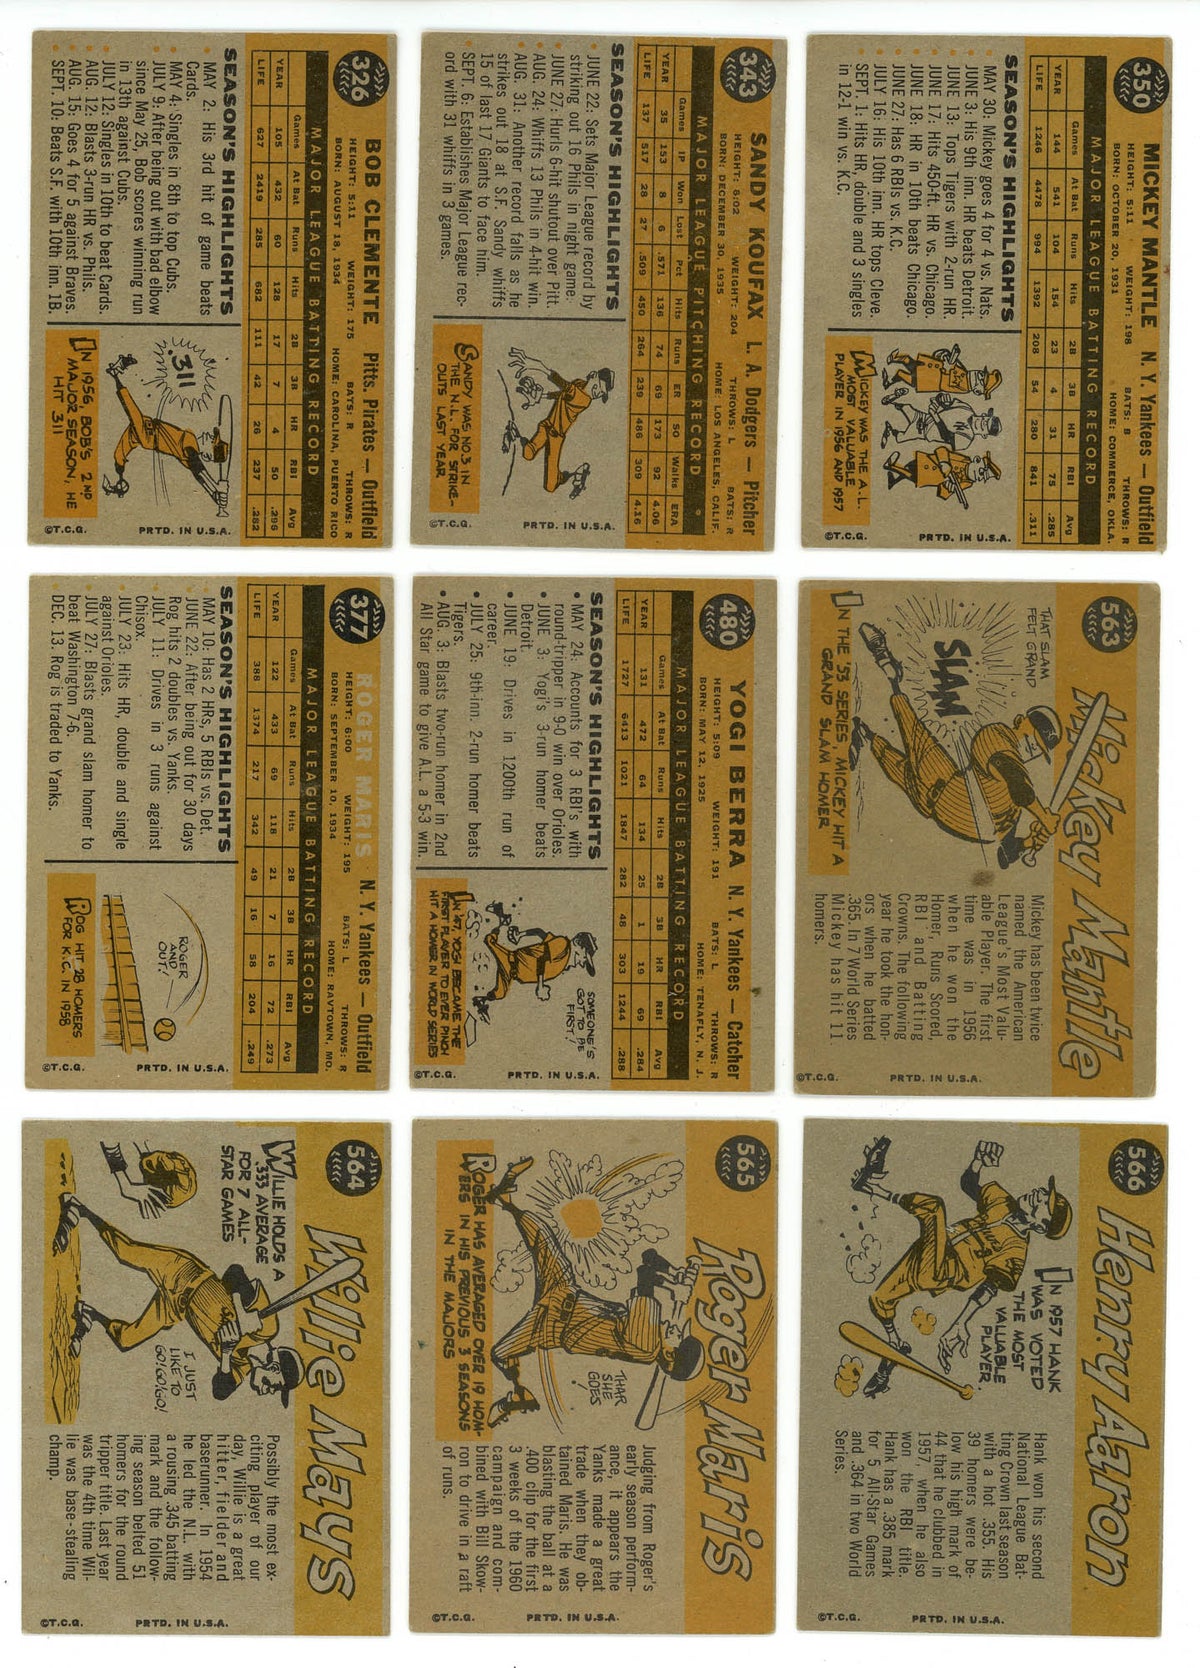 350
MICKEY MANTLE N. Y. Yankees — Outfield
HEIGHT: 5:11 WEIGHT: 198 BATS: B THROWS: R
BORN: OCTOBER 20, 1931 HOME: COMMERCE, OKLA.
MAJOR LEAGUE BATTING RECORD
Games At Bat Runs Hits 2B 3B HR RBI Avg
YEAR 144 541 104 154 23 4 31 75 .285
LIFE 1246 4478 994 1392 208 54 280 841 .311
SEASON'S HIGHLIGHTS
MAY 30: Mickey goes 4 for 4 vs. Nats.
JUNE 3: His 9th inn. HR beats Detroit.
JUNE 13: Tops Tigers with 2-run HR.
JUNE 17: Hits 450-ft. HR vs. Chicago.
JUNE 18: HR in 10th beats Chicago.
JUNE 27: Has 6 RBIs vs. K.C.
JULY 16: His 10th inn. HR tops Cleve.
SEPT. 1: Hits HR, double and 3 singles
in 12-1 win vs. K.C.
MICKEY WAS THE A.L.
MOST VALUABLE
PLAYER IN 1956 AND 1957
©T.C.G. PRTD. IN U.S.A.
343
SANDY KOUFAX L. A. Dodgers — Pitcher
HEIGHT: 6:02 WEIGHT: 204 THROWS: L BATS: R
BORN: DECEMBER 30, 1935 HOME: LOS ANGELES, CALIF.
MAJOR LEAGUE PITCHING RECORD
Games IP Won Lost Pct Hits Runs ER SO Walks ERA
YEAR 35 153 8 6 .571 136 74 69 173 92 4.06
LIFE 137 517 28 27 .509 450 264 239 486 309 4.16
SEASON'S HIGHLIGHTS
JUNE 22: Sets Major League record by
striking out 16 Phils in night game.
JUNE 27: Hurls 6-hit shutout over Pitt.
AUG. 24: Whiffs 13 Phils in 4-hit win.
AUG. 31: Another record falls as he
strikes out 18 at S.F. Sandy whiffs
15 of last 17 Giants to face him.
SEPT. 6: Establishes Major League rec-
ord with 31 whiffs in 3 games.
SANDY WAS NO. 3 IN
THE N.L. FOR STRIKE-
OUTS LAST YEAR
©T.C.G. PRTD. IN U.S.A.
326
BOB CLEMENTE Pitts. Pirates — Outfield
HEIGHT: 5:11 WEIGHT: 175 BATS: R THROWS: R
BORN: AUGUST 18, 1934 HOME: CAROLINA, PUERTO RICO
MAJOR LEAGUE BATTING RECORD
Games At Bat Runs Hits 2B 3B HR RBI Avg
YEAR 105 432 60 128 17 7 4 50 .296
LIFE 627 2419 285 682 111 42 26 237 .282
SEASON'S HIGHLIGHTS
MAY 2: His 3rd hit of game beats
Cards.
MAY 4: Singles in 8th to top Cubs.
JULY 9: After being out with bad elbow
since May 25, Bob scores winning run
in 13th against Cubs.
JULY 12: Singles in 10th to beat Cards.
AUG. 12: Blasts 3-run HR vs. Phils.
AUG. 15: Goes 4 for 5 against Braves.
SEPT. 10: Beats S.F. with 10th inn. 1B.
.311
IN 1956, BOB'S 2ND
MAJOR SEASON, HE
HIT .311
©T.C.G. PRTD. IN U.S.A.
563
Mickey Mantle
THAT SLAM
FELT GRAND
SLAM
IN THE '53 SERIES, MICKEY HIT A
GRAND SLAM HOMER
Mickey has been twice
named the American
League's Most Valu-
able Player. The first
time was in 1956
when he won the
Homer, Runs Scored,
RBI and Batting
Crowns. The following
year he took the hon-
ors when he batted
.365. In 7 World Series
Mickey has hit 11
homers.
©T.C.G. PRTD. IN U.S.A.
480
YOGI BERRA N. Y. Yankees — Catcher
HEIGHT: 5:09 WEIGHT: 191 BATS: L THROWS: R
BORN: MAY 12, 1925 HOME: TENAFLY, N. J.
MAJOR LEAGUE BATTING RECORD
Games At Bat Runs Hits 2B 3B HR RBI Avg
YEAR 131 472 64 134 25 1 19 69 .284
LIFE 1727 6413 1021 1847 282 48 303 1244 .288
SEASON'S HIGHLIGHTS
• MAY 24: Accounts for 3 RBI's with
round-tripper in 9-0 win over Orioles.
• JUNE 3: Yogi's 3-run homer beats
Detroit.
• JUNE 19: Drives in 1200th run of
career.
• JULY 25: 9th-inn. 2-run homer beats
Tigers.
• AUG. 3: Blasts two-run homer in 2nd
All Star game to give A.L. a 5-3 win.
SOMEONE'S
GOT TO BE
FIRST!
IN '47, YOGI BECAME THE
FIRST PLAYER TO EVER PINCH
HIT A HOMER IN WORLD SERIES
©T.C.G. PRTD. IN U.S.A.
377
ROGER MARIS N. Y. Yankees — Outfield
HEIGHT: 6:00 WEIGHT: 195 BATS: L THROWS: R
BORN: SEPTEMBER 10, 1934 HOME: RAYTOWN, MO.
MAJOR LEAGUE BATTING RECORD
Games At Bat Runs Hits 2B 3B HR RBI Avg
YEAR 122 433 69 118 21 7 16 72 .273
LIFE 388 1374 217 342 49 16 58 204 .249
SEASON'S HIGHLIGHTS
MAY 10: Has 2 HRs, 5 RBIs vs. Det.
JUNE 22: After being out for 30 days
Rog hits 2 doubles vs. Yanks.
JULY 11: Drives in 3 runs against
Chisox.
JULY 23: Hits HR, double and single
against Orioles.
JULY 27: Blasts grand slam homer to
beat Washington 7-6.
DEC. 13. Rog is traded to Yanks.
ROGER
AND
OUT!
ROG HIT 28 HOMERS
FOR K.C. IN 1958
©T.C.G. PRTD. IN U.S.A.
566
Henry Aaron
IN 1957 HANK
WAS VOTED
THE MOST
VALUABLE
PLAYER
Hank won his second
National League Bat-
ting Crown last season
with a hot .355. His
39 homers were be-
low his high mark of
44 that he clubbed in
1957, when he also
won the RBI title.
Hank has a .385 mark
for 5 All-Star Games
and .364 in two World
Series.
©T.C.G. PRTD. IN U.S.A.
565
Roger Maris
THAR
SHE
GOES
ROGER HAS AVERAGED OVER 19 HOM-
ERS IN HIS PREVIOUS 3 SEASONS
IN THE MAJORS
Judging from Roger's
early season perform-
ance, it appears the
Yanks made a great
trade when they ob-
tained Maris. He was
blasting the ball at a
.400 clip for the first
3 weeks of the 1960
campaign and com-
bined with Bill Skow-
ron to drive in a raft
of runs.
©T.C.G. PRTD. IN U.S.A.
564
Willie Mays
WILLIE HOLDS A
.333 AVERAGE
FOR 7 ALL-
STAR GAMES
I JUST
LIKE TO
GO! GO! GO!
Possibly the most ex-
citing player of our
day, Willie is a great
hitter, fielder and
baserunner. In 1954
he led the N.L. with
a rousing .345 batting
mark and the follow-
ing season belted 51
homers for the round
tripper title. Last year
was the 4th time Wil-
lie was base-stealing
champ.
©T.C.G. PRTD. IN U.S.A.